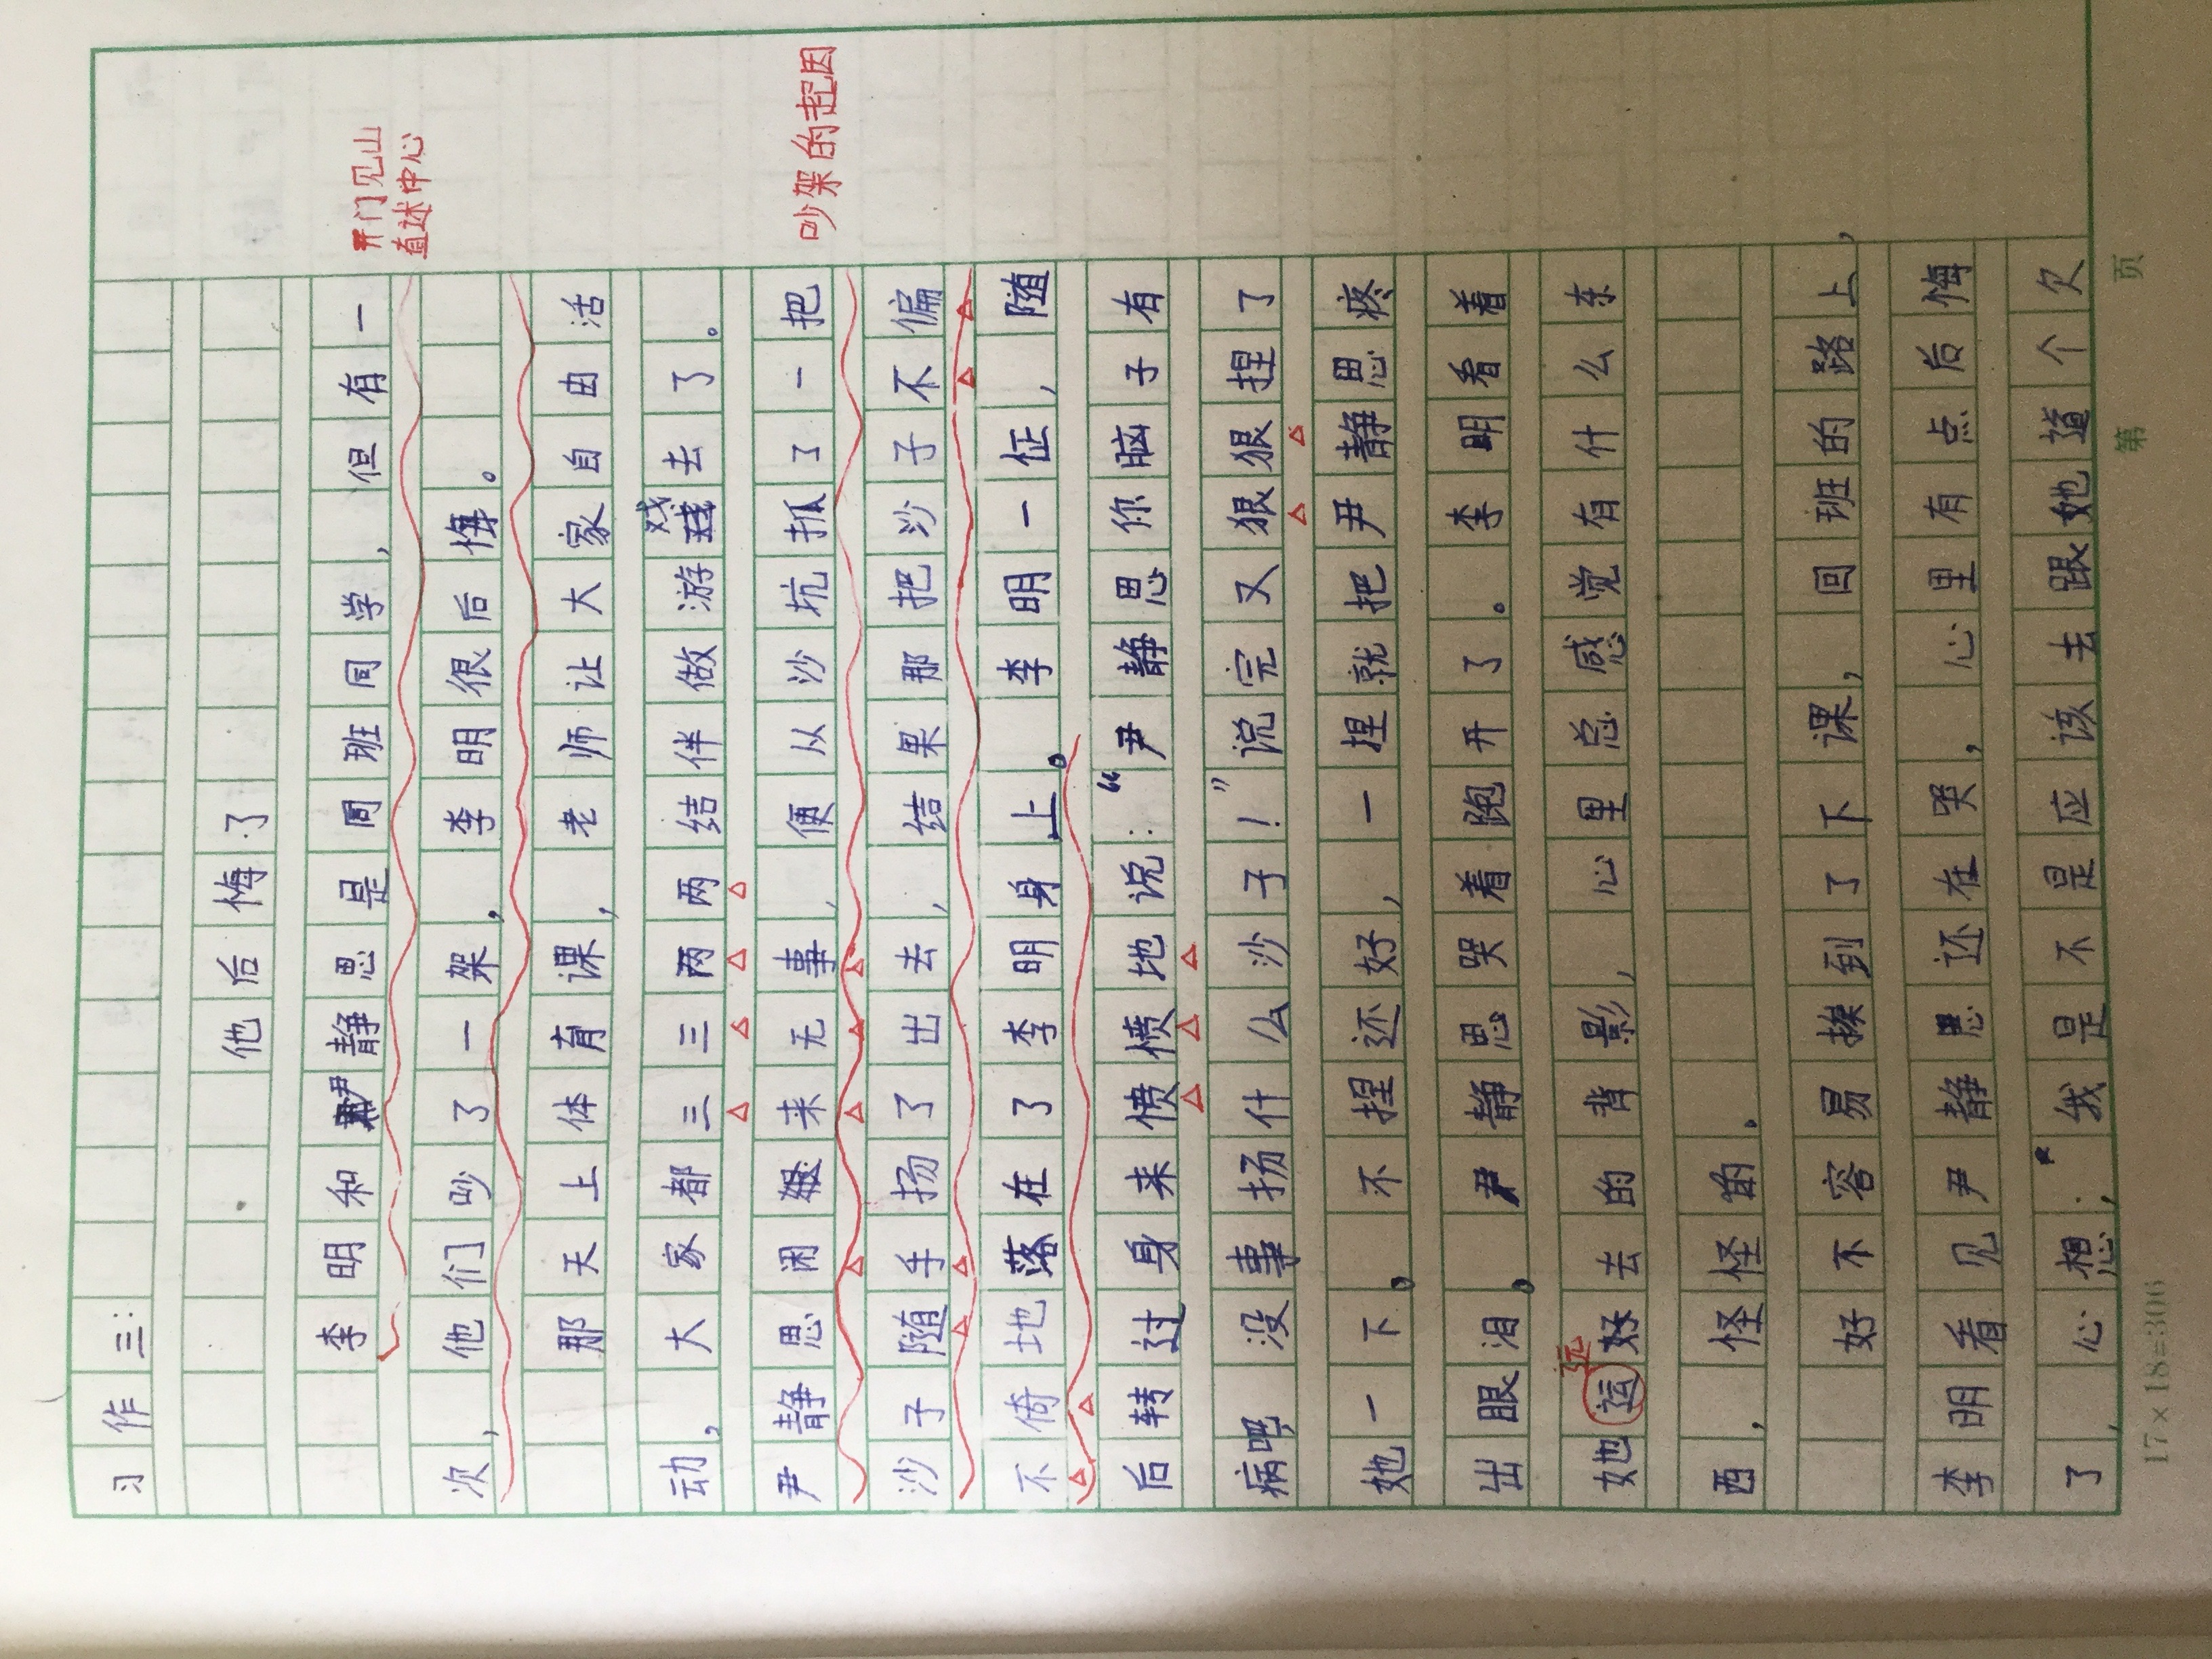 习作三：
他后悔了
李明和尹静思是同班同学，但有一
开门见山
直述中心
次，他们吵了一架，李明很后悔。
那天上体育课，老师让大家自由活
动，大家都三三两两结伴做游戏去了。
尹静思闲来无事，便从沙坑抓了一把
吵架的起因
沙子随手扬了出去，结果那把沙子不偏
不倚地落在了李明身上。李明一怔，随
后转过身来愤愤地说：“尹静思你脑子有
病吧，没事扬什么沙子！”说完又狠狠捏了
她一下。不捏还好，一捏就把尹静思疼
出眼泪。尹静思哭着跑开了。李明看着
她运好去的背影，心里总感觉有什么东
远
西，怪怪的。
好不容易挨到了下课，回班的路上，
李明看见尹静思还在哭，心里有点后悔
了，心想：“我是不是应该去跟她道个欠
17×18=306
第 页